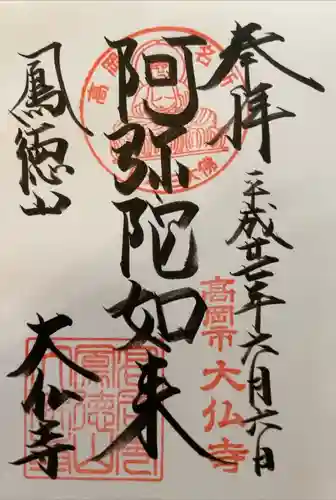 奉拝
平成廿七年六月六日
高岡市大仏寺
阿弥陀如来
鳳徳山
大仏寺